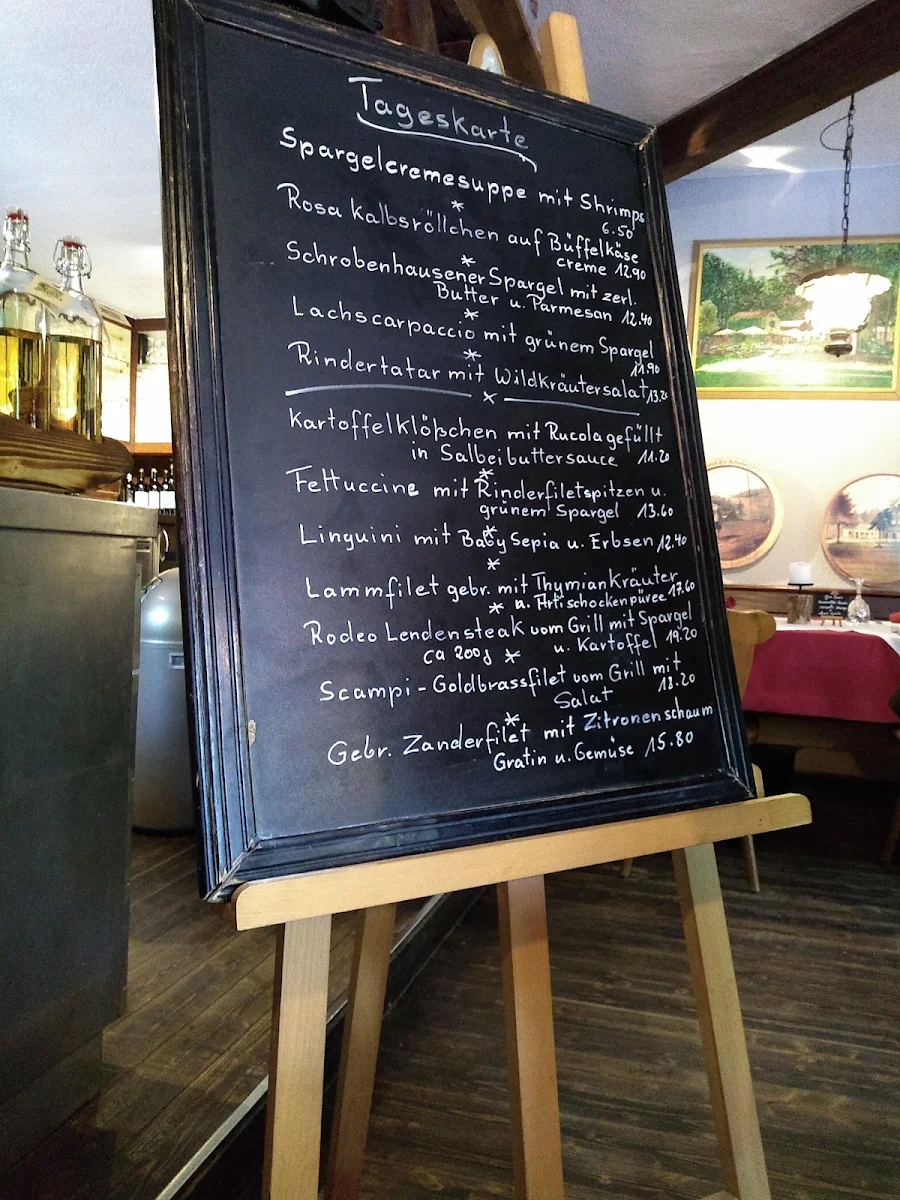 Tageskarte
Spargelcremesuppe mit Shrimps
6.50
*
Rosa Kalbsröllchen auf Büffelkäse
creme 12.90
*
Schrobenhausener Spargel mit zerl.
Butter u. Parmesan 12.40
*
Lachscarpaccio mit grünem Spargel
11.90
*
Rindertatar mit Wildkräutersalat 13.20
*
Kartoffelklößchen mit Rucola gefüllt
in Salbeibuttersauce 11.20
*
Fettuccine mit Rinderfiletspitzen u.
grünem Spargel 13.60
*
Linguini mit Baby Sepia u. Erbsen 12.40
*
Lammfilet gebr. mit Thymian Kräuter
* u. Artischockenpüree 17.60
Rodeo Lendensteak vom Grill mit Spargel
ca 200g * u. Kartoffel 19.20
Scampi - Goldbrassfilet vom Grill mit
Salat 18.20
*
Gebr. Zanderfilet mit Zitronenschaum
Gratin u. Gemüse 15.80